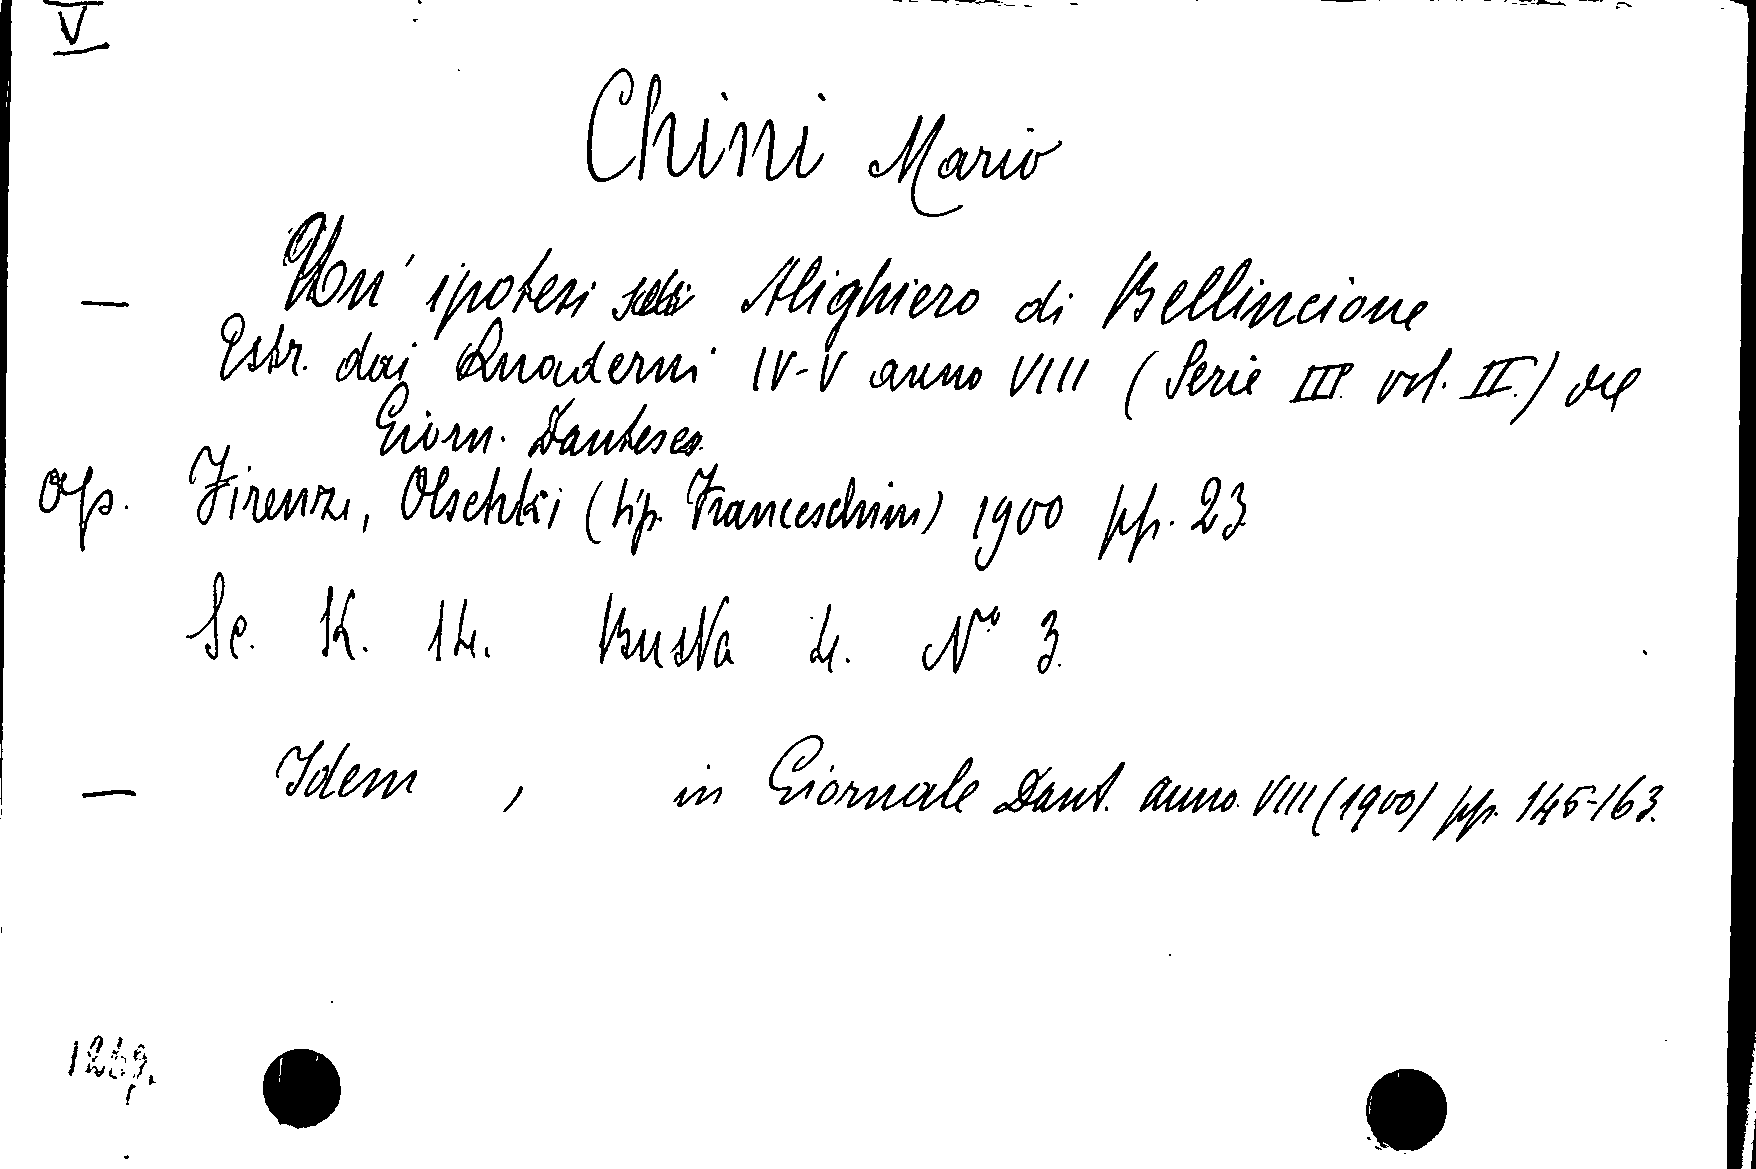 V
Chini Mario
— Un' ipotesi su Alighiero di Bellincione
Estr. dai Quaderni IV-V anno VIII (Serie III vol. II.) del
Giorn. Dantesco.
Op. Firenze, Olschki (tip. Franceschini) 1900 pp. 23
Sc. K. 14. Busta 4. N° 3.
— Idem , in Giornale Dant. anno VIII (1900) pp. 145-163.